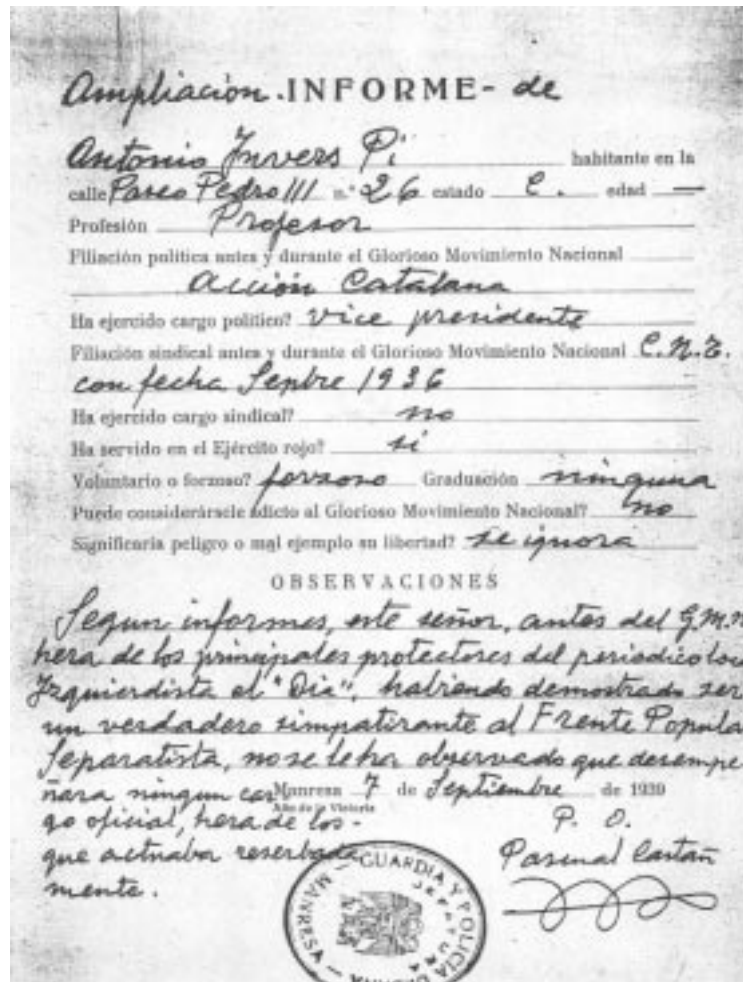 Ampliación. INFORME- de
Antonio Invers Pi habitante en la
calle Paseo Pedro III n.º 26 estado C. edad —
Profesión Profesor
Filiación política antes y durante el Glorioso Movimiento Nacional
Acción Catalana
Ha ejercido cargo político? vice presidente
Filiación sindical antes y durante el Glorioso Movimiento Nacional C.N.T.
con fecha Sepbre 1936
Ha ejercido cargo sindical? no
Ha servido en el Ejército rojo? si
Voluntario o forzoso? forzoso Graduación ninguna
Puede considerársele adicto al Glorioso Movimiento Nacional? no
Significaría peligro o mal ejemplo su libertad? se ignora
OBSERVACIONES
Segun informes, este señor, antes del G.M.N
hera de los principales protectores del periodico
Izquierdista el "Dia", habiendo demostrado ser
un verdadero simpatizante al Frente Popula
Separatista, no se le ha observado que desempe
ñara ningun car Manresa 7 de Septiembre de 1939
Año de la Victoria
go oficial, hera de los - P. O.
que actuaba reserbada Pascual Castañ
mente.
GUARDIA Y POLICIA
MANRESA
JEFATURA